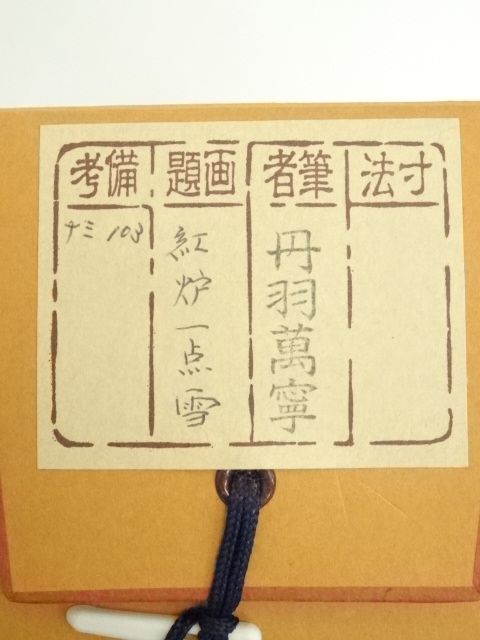 寸法
筆者
丹羽萬寧
画題
紅炉一点雪
備考
ナミ 103